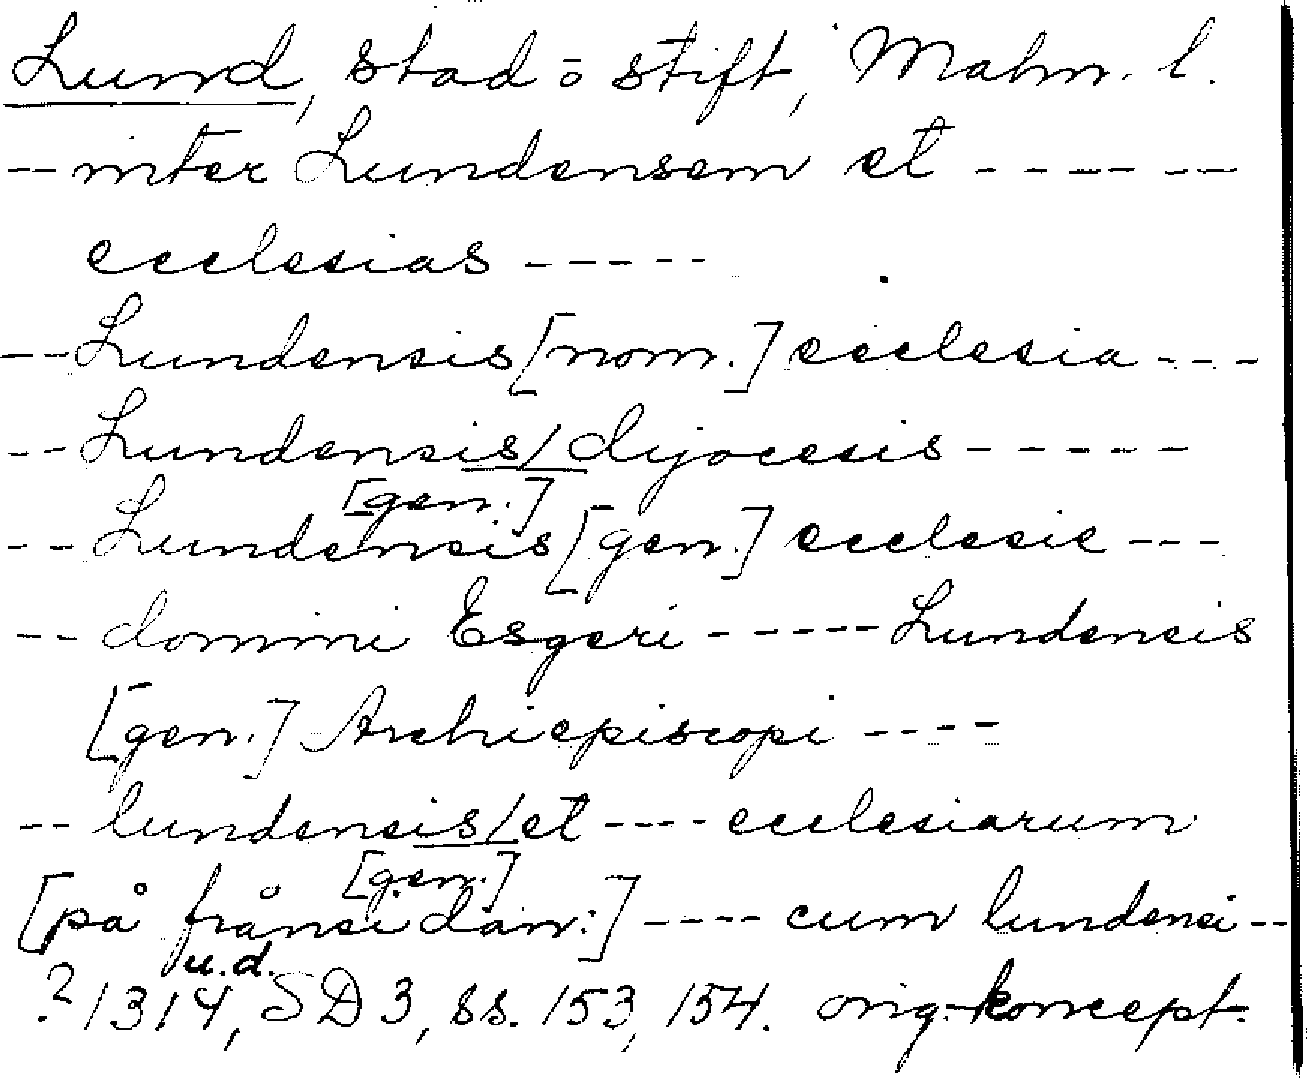 Lund, stad o stift, Malm. l.
-- inter Lundensem et ------
ecclesias -----
-- Lundensis [nom.] ecclesia ---
-- Lundensis/ dyocesis -----
[gen.]
-- Lundensis [gen.] ecclesie ---
-- domini Esgeri ----- Lundensis
[gen.] Archiepiscopi ----
-- lundensis/ et ---- ecclesiarum
[gen.]
[på frånsidan:] ---- cum lundensi --
u.d.
? 1314, SD 3, ss. 153, 154. orig.-koncept.